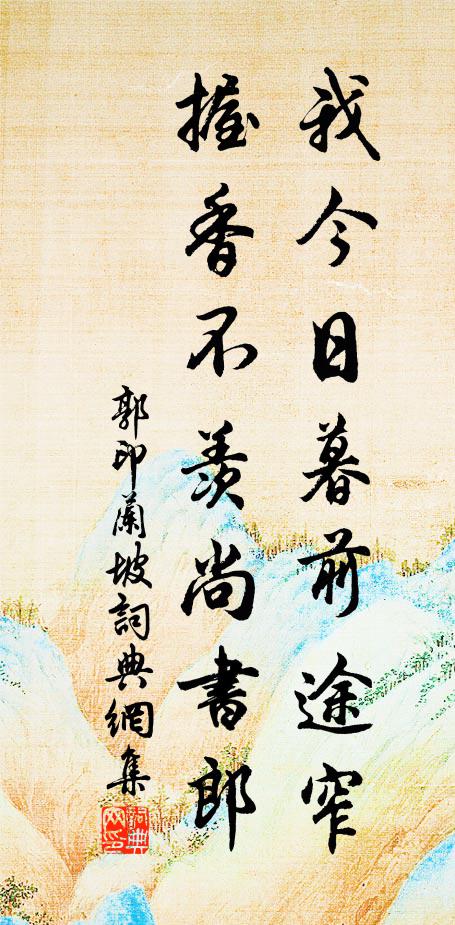 我今日暮前途窄
握香不羨尚書郎
郭印蘭坡詞典網集
詞典网印